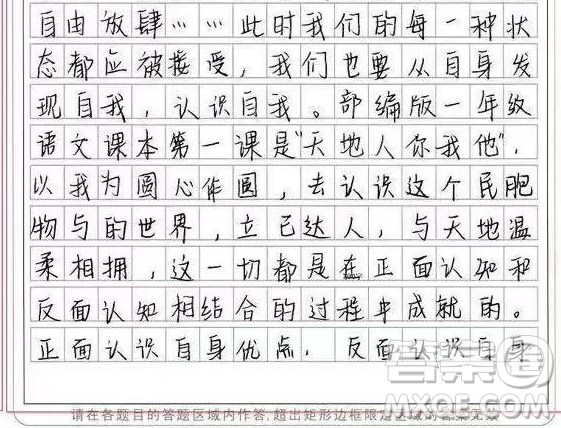 自由放肆⋯⋯此时我们的每一种状
态都应被接受，我们也要从自身发
现自我，认识自我。部编版一年级
语文课本第一课是“天地人你我他”，
以我为圆心作圆，去认识这个民胞
物与的世界，立己达人，与天地温
柔相拥，这一切都是在正面认知和
反面认知相结合的过程中成就的。
正面认识自身优点，反面认识自身
请在各题目的答题区域内作答，超出矩形边框限定区域的答案无效